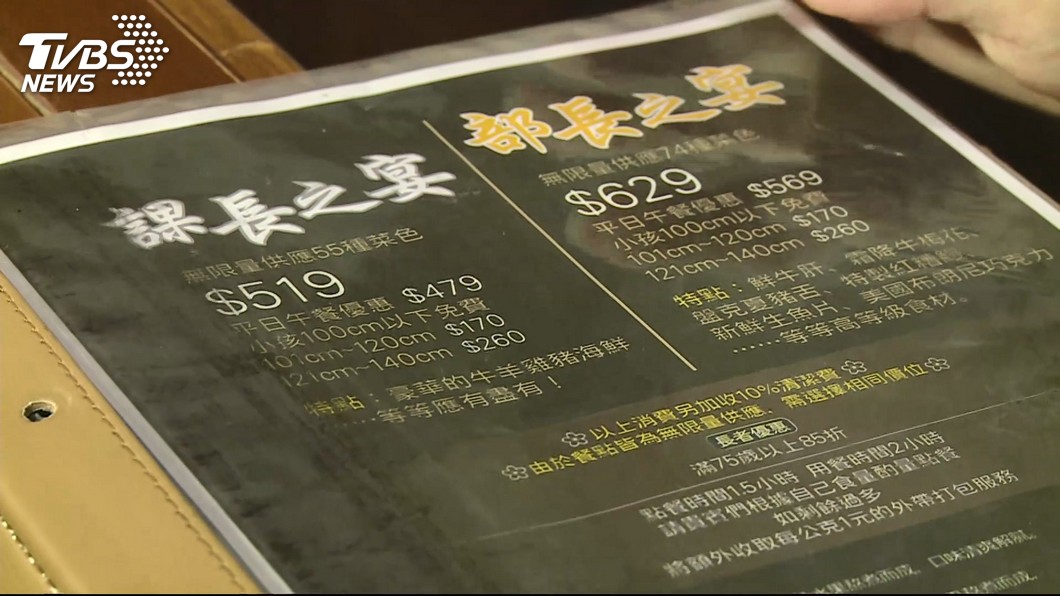 TVBS
NEWS
課長之宴
無限量供應55種菜色
$519
平日午餐優惠 $479
小孩100cm以下免費
101cm~120cm $170
121cm~140cm $260
特點：豪華的牛羊雞豬海鮮
......等等應有盡有！
部長之宴
無限量供應74種菜色
$629
平日午餐優惠 $569
小孩100cm以下免費
101cm~120cm $170
121cm~140cm $260
特點：鮮牛肝、霜降牛梅花、
盤克夏豬舌、特製紅麵線、
新鮮生魚片、美國布朗尼巧克力
......等等高等級食材。
以上消費另加收10%清潔費
由於餐點皆為無限量供應，需選擇相同價位
長者優惠
滿75歲以上85折
點餐時間1.5小時 用餐時間2小時
請貴賓們根據自己食量酌量點餐
如剩餘過多
將額外收取每公克1元的外帶打包服務
熬煮而成，口味清爽解膩。
熬煮而成，